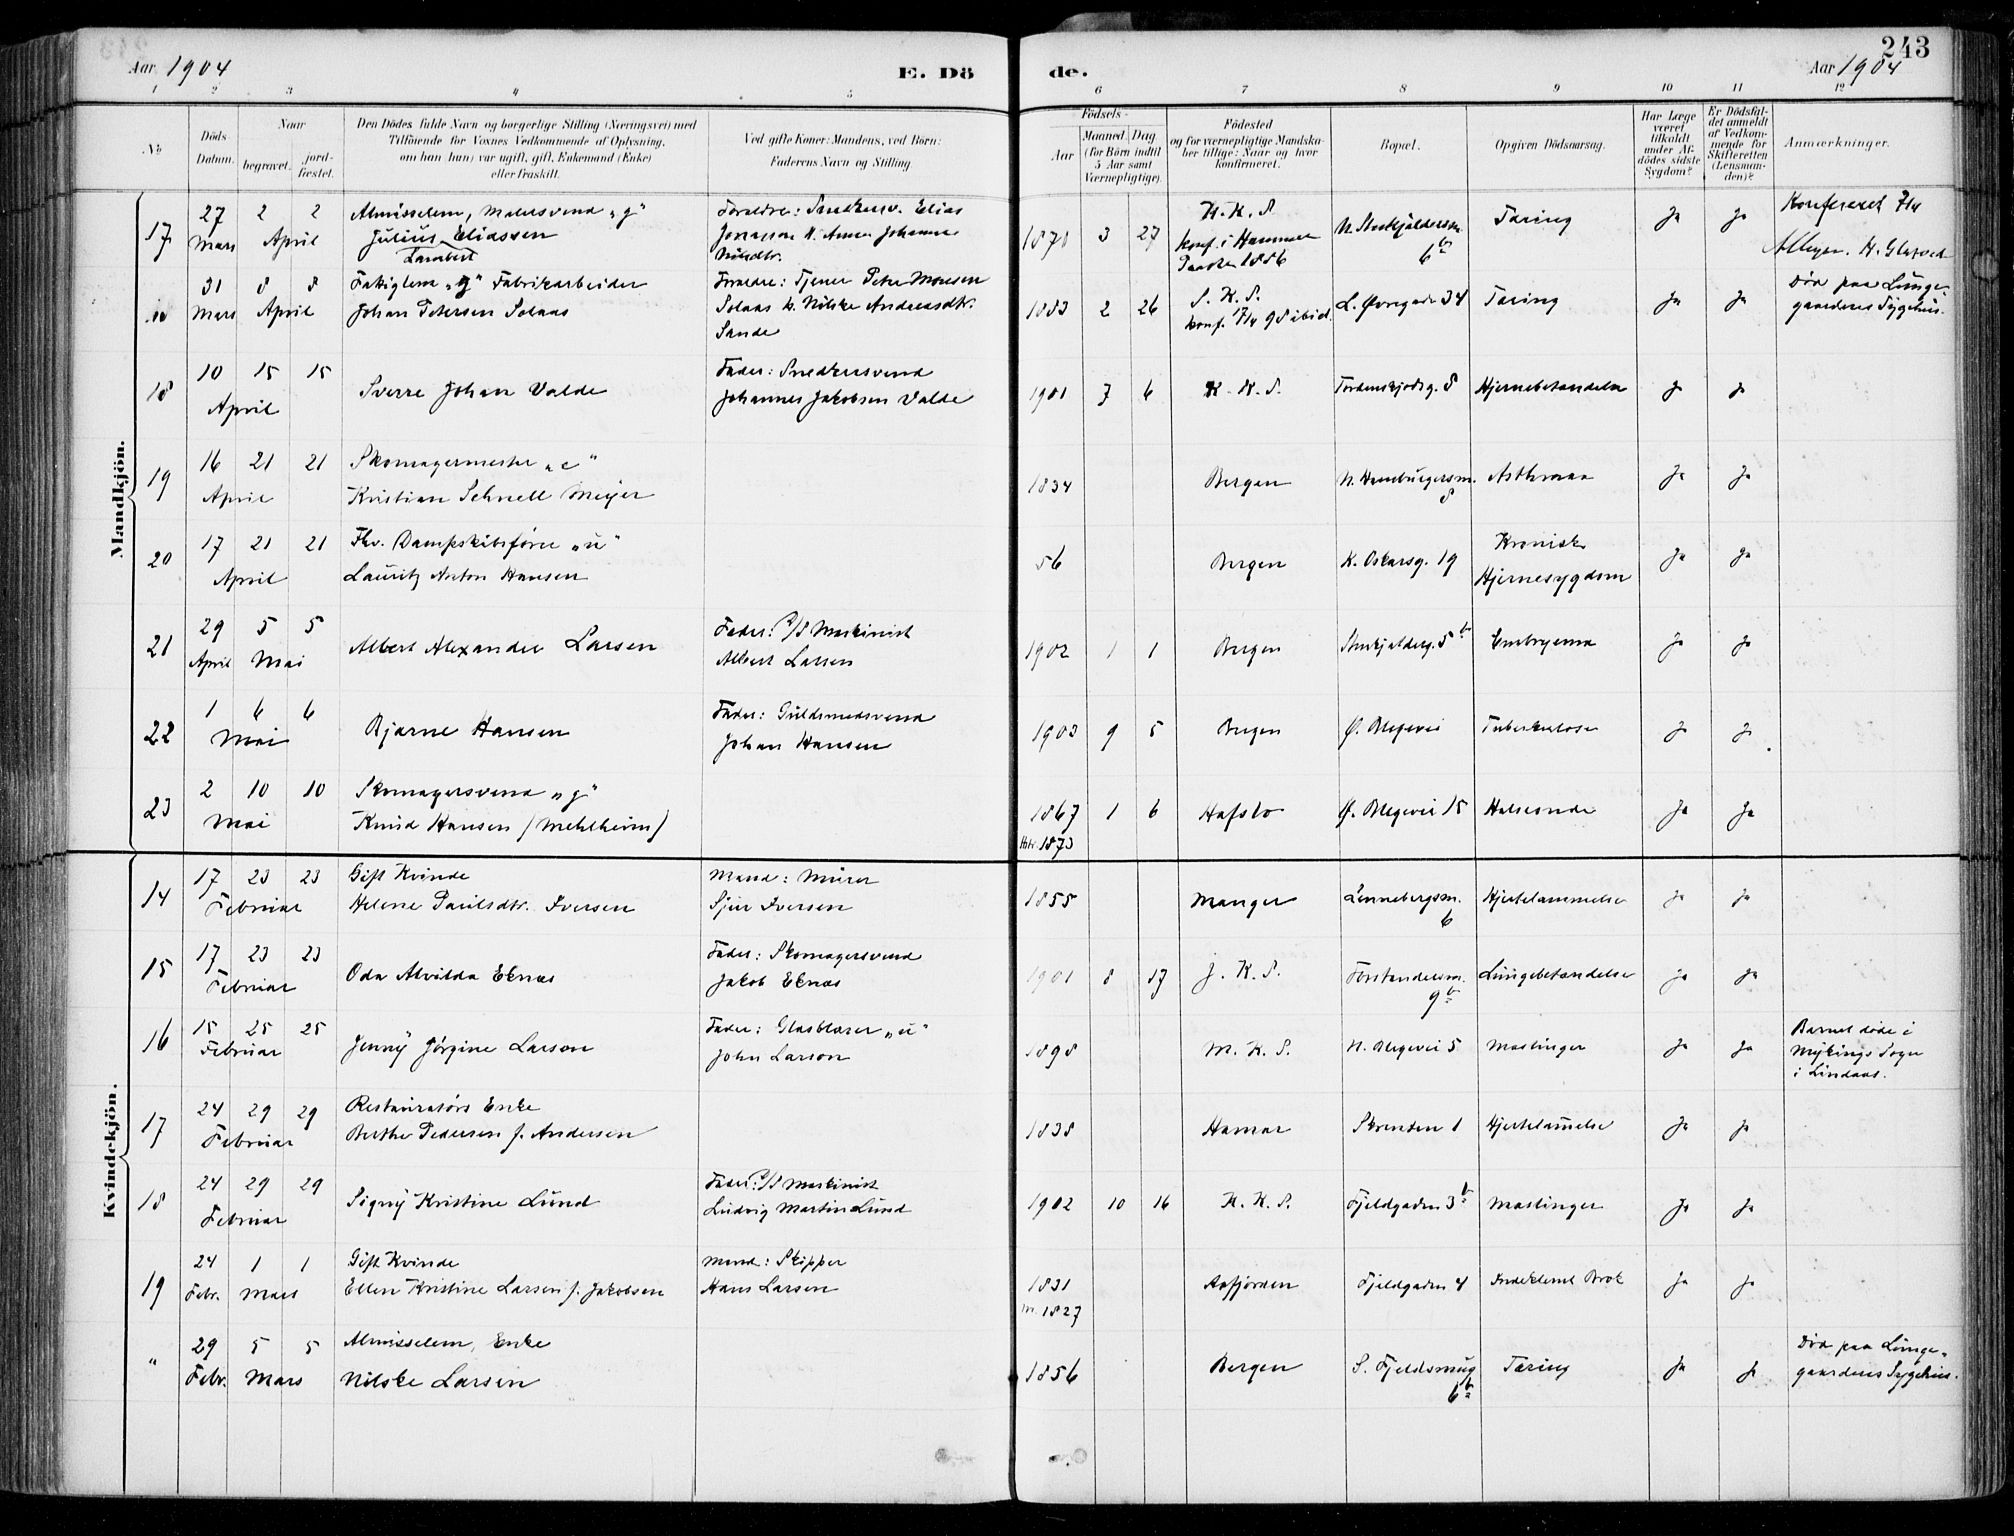 243
Aar 1904
E. Döde.
Aar 1904
1 2 3 4 5 6 7 8 9 10 11 12
No
Döds Datum.
Naar
begravet.
jordfæstet.
Den Dödes fulde Navn og borgerlige Stilling (Næringsvei) med
Tilföiende for Voxnes Vedkommende af Oplysning,
om han (hun) var ugift, gift, Enkemand (Enke)
eller fraskilt.
Ved gifte Koner: Mandens, ved Börn:
Faderens Navn og Stilling.
Födsels-
Aar
Maaned. Dag.
(for Börn indtil
5 Aar samt
Værnepligtige).
Födested
og for værnepligtige Mandskaber tillige: Naar og hvor
konfirmeret.
Bopæl.
Opgiven Dödsaarsag.
Har Læge
været
tilkaldt
under Afdödes sidste
Sygdom?
Er Dödsfaldet anmeldt
af Vedkommende for
Skifteretten
(Lensmanden)?
Anmærkninger.
Mandkjön.
17 27 Mars 2 2 April Almisselem, Malersvend "g"
Julius Lambert Eliassen
Forældre: Snedkersv. Elias
Johanne
1870 3 27 K. K. S.
konf. i Hammer
1886
6b Tæring Ja Ja
31 Mars 8 8 April Fattiglem "g" Fabrikarbeider
Johan Petersen Solaas
Forældre: Tjener Peter Monsen
Solaas k. Nilske Andreasdtr.
Sande
1883 2 26 S. K. S.
konf. 17/4 98 ibid.
L. Øvregade 34 Tæring Ja Ja
Död paa Lungegaardens Sygehus.
18 10 15 15 April Sverre Johan Valde
Fader: Snedkersvend
Johannes Jakobsen Valde
1901 7 6 K. K. S. Tordenskjoldsg. 8 Hjernebetændelse Ja Ja
19 16 21 21 April Skomagermester "e"
Kristian Schnell Meyer
1834 Bergen N. Hamburgersm. 8 Asthma Ja Ja
20 17 21 21 April Fhv. Dampskibsfører "u"
Lauritz Anton Hansen
56 Bergen K. Oskarsg. 19 Kronisk
Hjernesygdom Ja Ja
21 29 April 5 5 Mai Albert Alexander Larsen
Fader: D/S Maskinist
Albert Larsen
1902 1 1 Bergen 5b Empyema Ja Ja
22 1 6 6 Mai Bjarne Hansen
Fader: Guldsmedsvend
Johan Hansen
1903 9 5 Bergen Ø. Blegevei Tuberkulose Ja Ja
23 2 10 10 Mai Skomagersvend "g"
Knud Hansen (Mehlheim)
1867 1 6
1873
Hafslo Ø. Blegevei 15 Halsonde Ja Ja
Kvindekjön.
14 17 23 23 Februar Gift Kvinde
Helene Paulsdtr. Iversen
Mand: Murer
Sjur Iversen
1855 Manger Lønnebergsm. 6 Hjertelammelse Ja Ja
15 17 23 23 Februar Oda Alvilda Eknæs
Fader: Skomagersvend
Jakob Eknæs
1901 8 17 J. K. S. Forstandersm. 9b Lungebetændelse Ja Ja
16 15 25 25 Februar Jenny Jørgine Larson
Fader: Glasblæser "u"
John Larson
1898 M. K. S. N. Blegevei 5 Mæslinger Ja Ja
Barnet døde i
Mykings Sogn
i Lindaas.
17 24 29 29 Februar Restauratørs Enke
Berthe Pedersen f. Andersen
1838 Hamar Skrenten 1 Hjertelam̄else Ja Ja
18 24 29 29 Februar Signy Kristine Lund
Fader: D/S Maskinist
Ludvig Martin Lund
1902 10 16 K. K. S. Fjeldgaden 3b Mæslinger Ja Ja
19 24 Febr. 1 1 Mars Gift Kvinde
Ellen Kristine Larsen f. Jakobsen
Mand: Skipper
Hans Larsen
1831
1827
Aafjorden Fjeldgaden 4 Indeklemt Brok Ja Ja
" 29 Febr. 5 5 Mars Almisselem, Enke
Nilske Larsen
1856 Bergen S. Fjeldsmug 6b Tæring Ja Ja
Död paa Lungegaardens Sygehus.